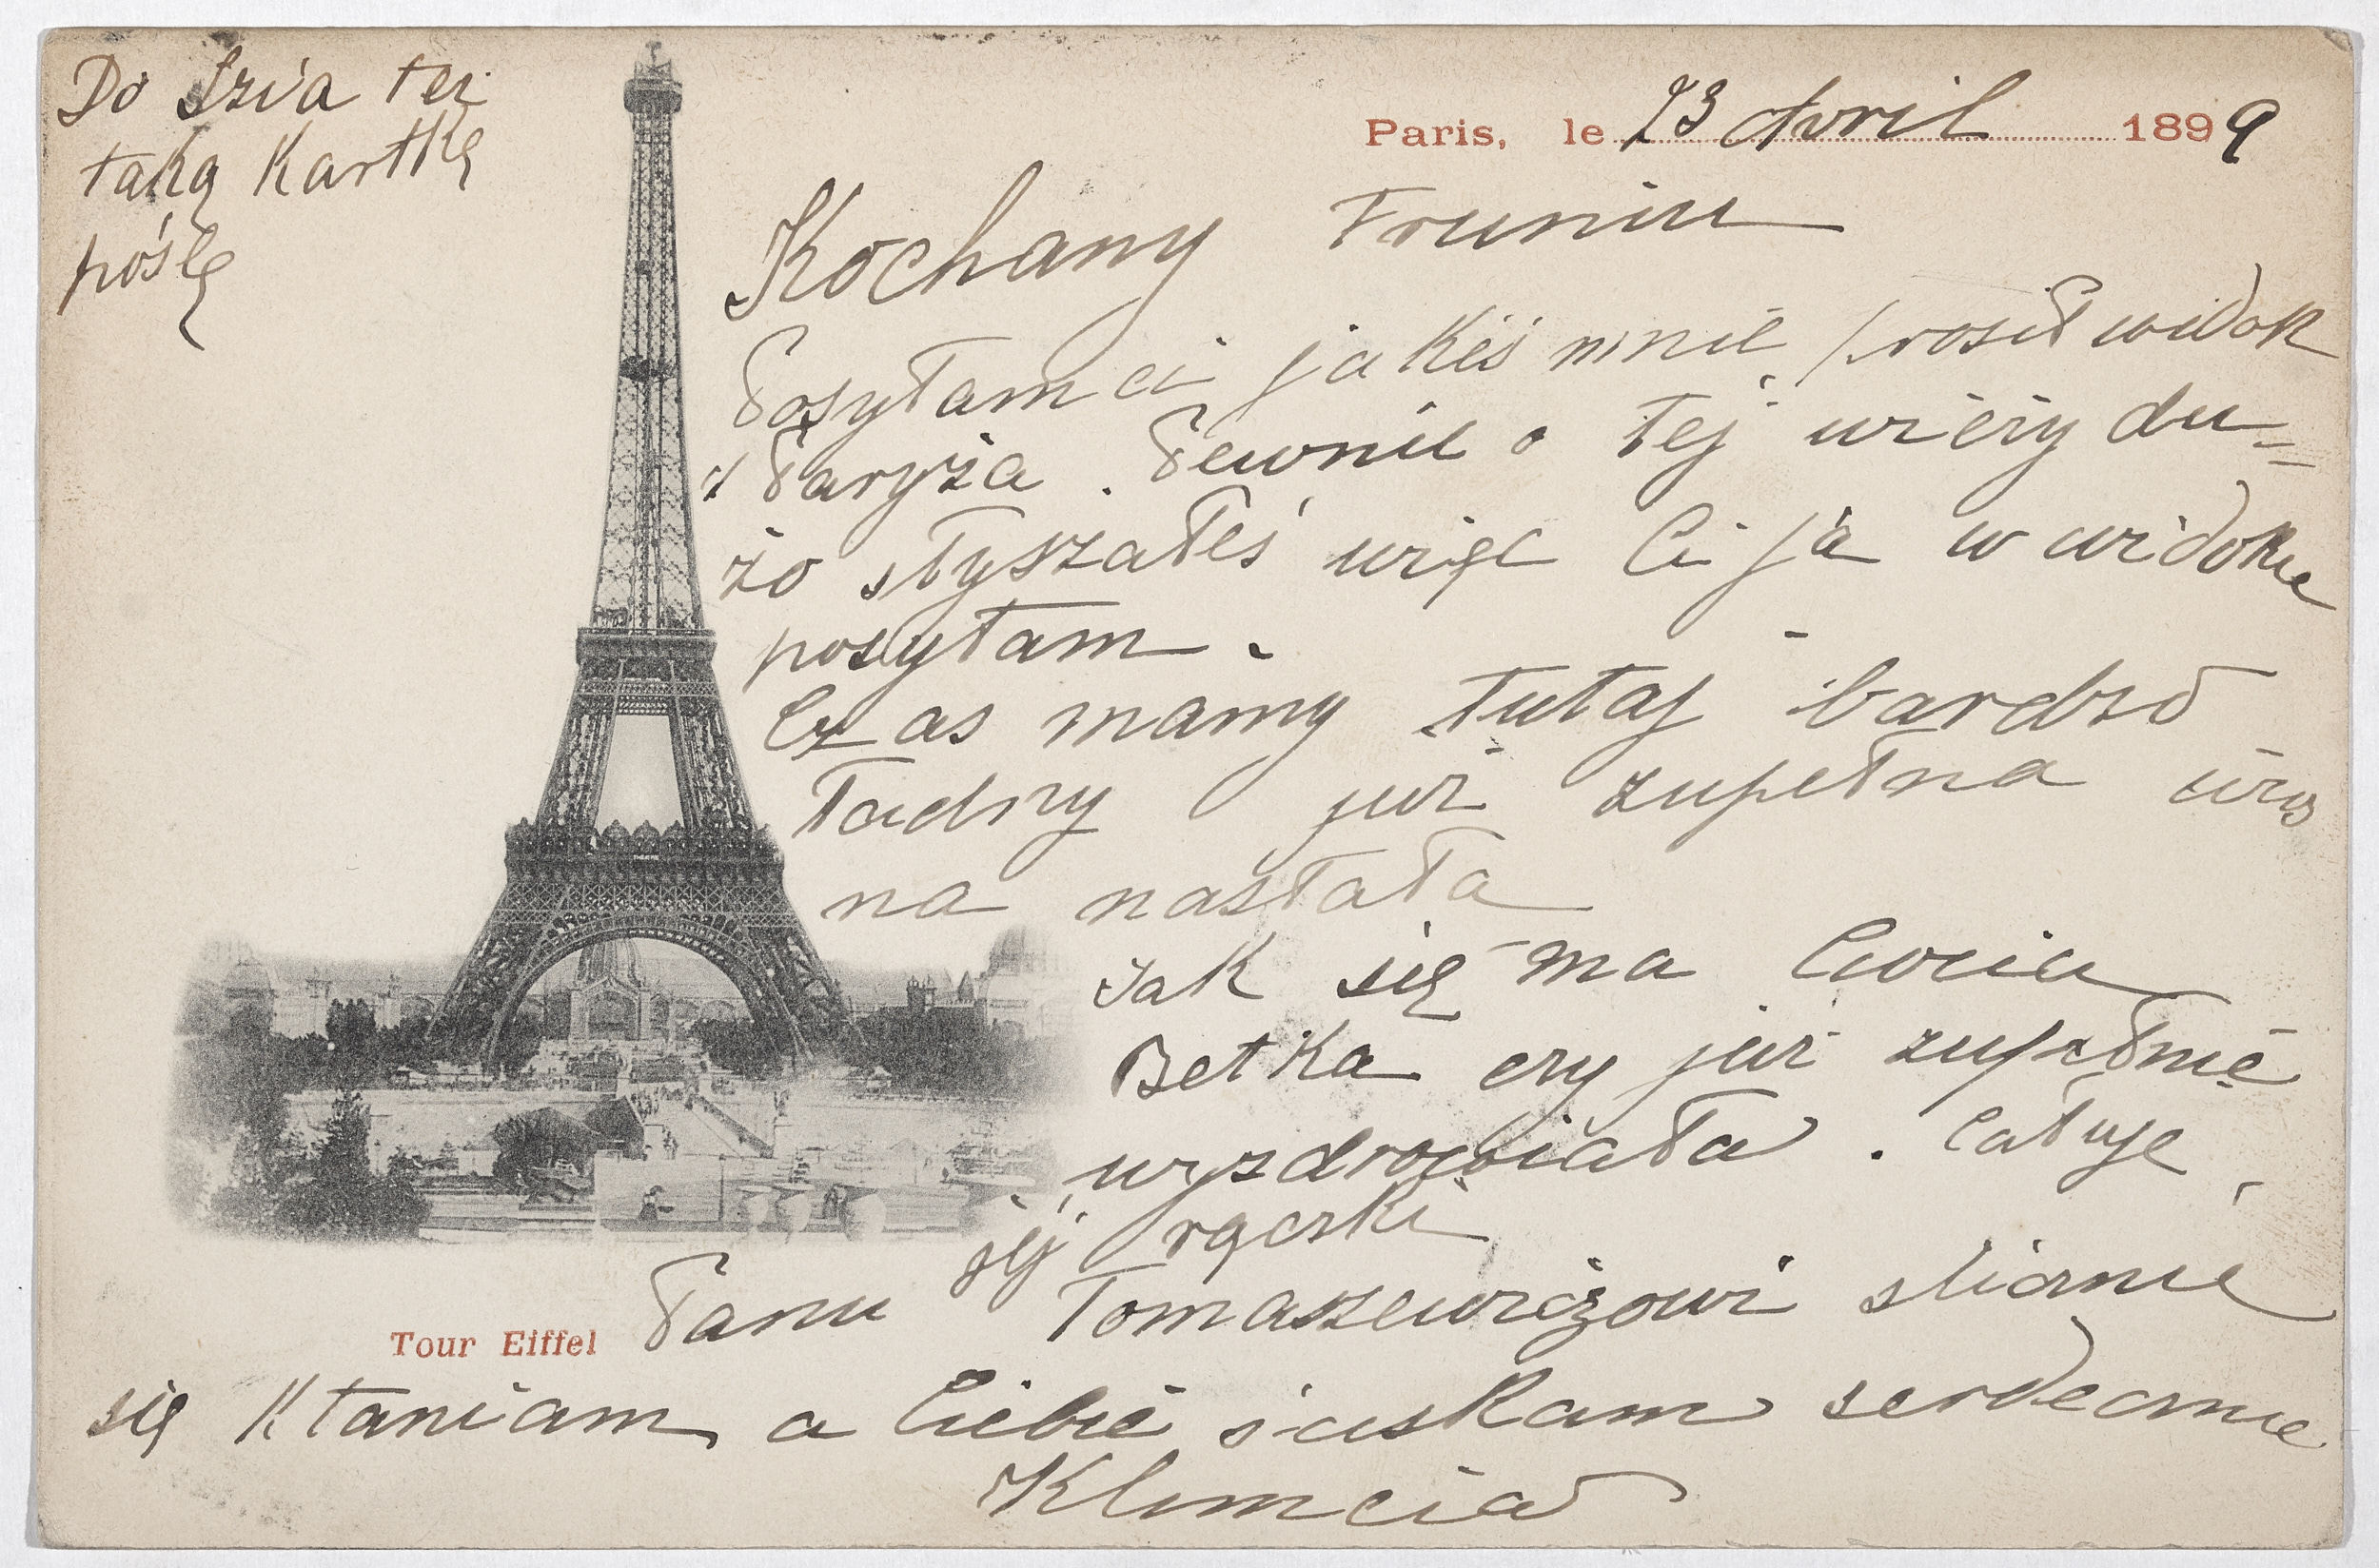 Do Izia też
taką Kartkę
poślę
Paris, le 23 Avril 1899
Kochany Fruniu
Posyłam ci jakieś mnie prosił widok
z Paryża. Pewnie o tej wieży du=
żo słyszałeś więc Ci ją w widoku
posyłam.
Czas mamy tutaj bardzo
ładny już zupełna wios
na nastała
Jak się ma Ciocia
Betka czy już zupełnie
wyzdrowiała. Całuję
jej rączki
Panu Tomaszewiczowi ślicznie
Tour Eiffel
się kłaniam, a Ciebie ściskam serdecznie
Klimcia